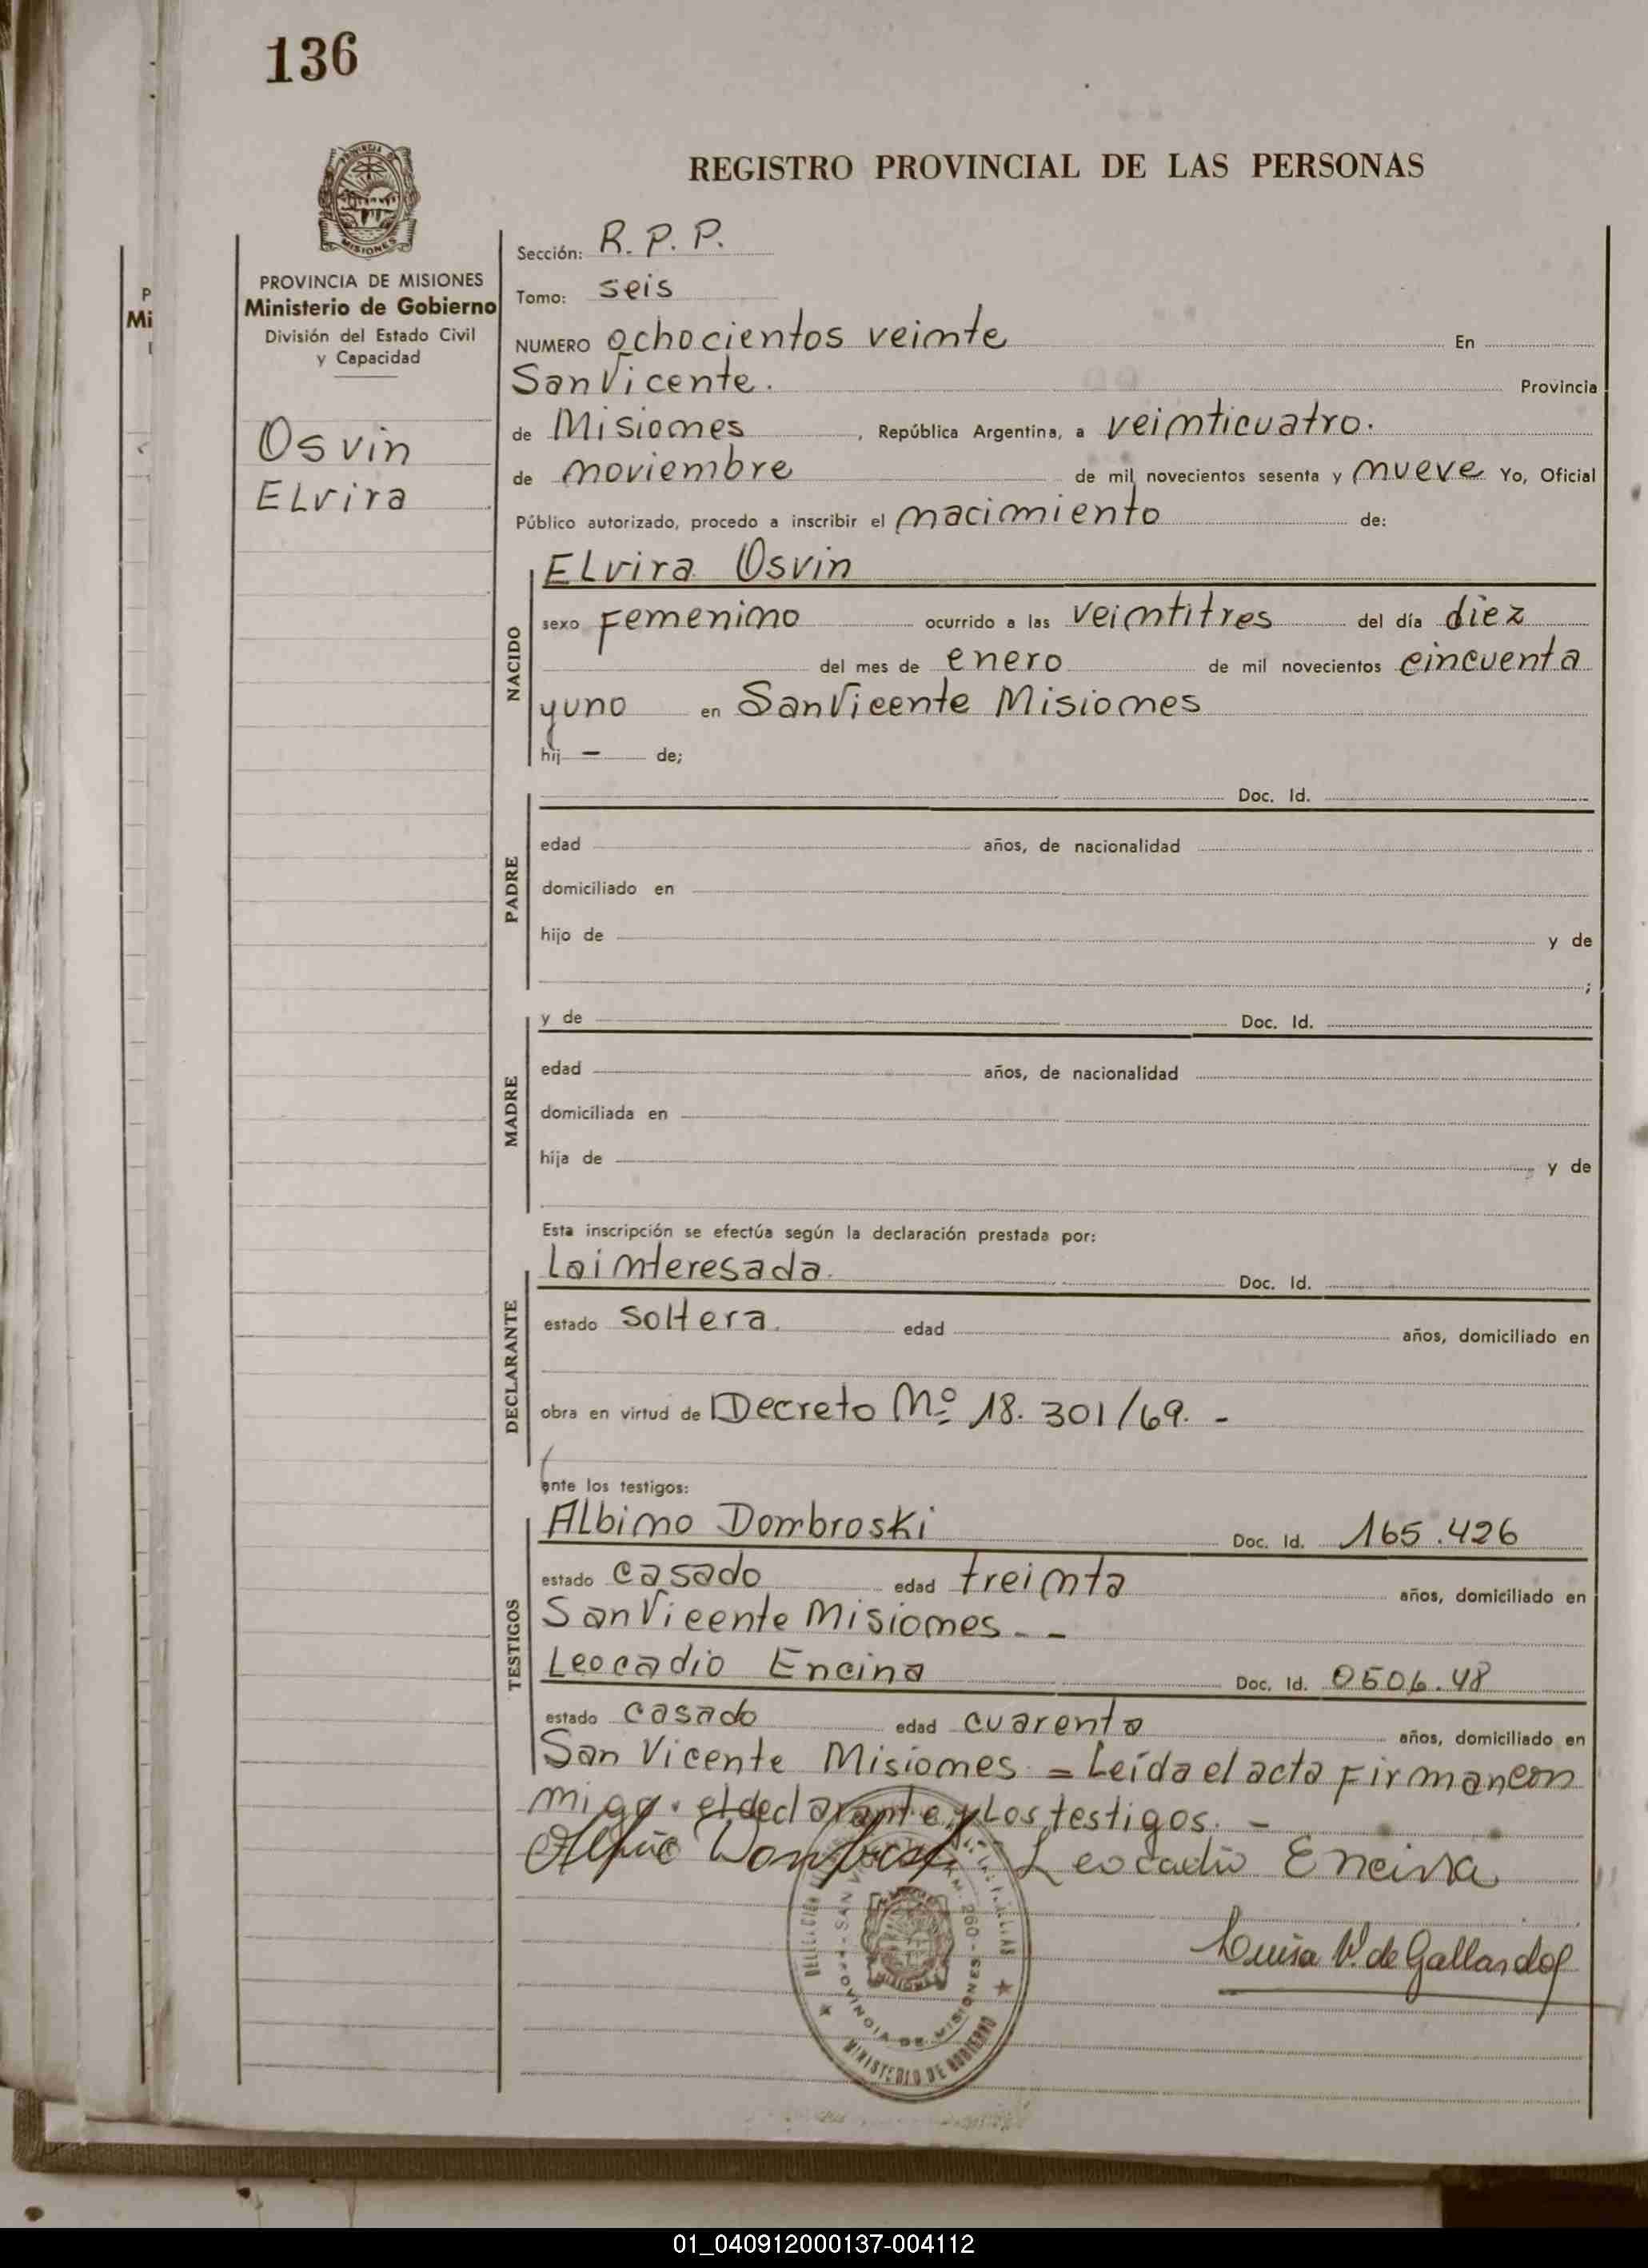 136
REGISTRO PROVINCIAL DE LAS PERSONAS
PROVINCIA DE MISIONES
Ministerio de Gobierno
División del Estado Civil
y Capacidad
Osvin
Elvira
P
Mi
Sección: R. P. P.
Tomo: seis
NUMERO ochocientos veinte En
San Vicente. Provincia
de Misiones, República Argentina, a veinticuatro.
de noviembre de mil novecientos sesenta y nueve Yo, Oficial
Público autorizado, procedo a inscribir el nacimiento de:
NACIDO
Elvira Osvin
sexo Femenino ocurrido a las veintitres del día diez
del mes de enero de mil novecientos cincuenta
y uno en San Vicente Misiones
hij — de;
PADRE
Doc. Id.
edad años, de nacionalidad
domiciliado en
hijo de y de
;
MADRE
y de Doc. Id.
edad años, de nacionalidad
domiciliada en
hija de y de
Esta inscripción se efectúa según la declaración prestada por:
DECLARANTE
La interesada. Doc. Id.
estado soltera. edad años, domiciliado en
obra en virtud de Decreto Nº 18.301/69. -
ante los testigos:
TESTIGOS
Albino Dombroski Doc. Id. 165.426
estado casado edad treinta años, domiciliado en
San Vicente Misiones - -
Leocadio Encina Doc. Id. 0506.48
estado casado edad cuarenta años, domiciliado en
San Vicente Misiones = Leída el acta Firman con
migo. el declarante y Los testigos. -
Leocadio Encina
Luisa V. de Gallardo
SAN VICENTE
PROVINCIA DE MISIONES
MINISTERIO DE GOBIERNO
MISIONES
01_040912000137-004112